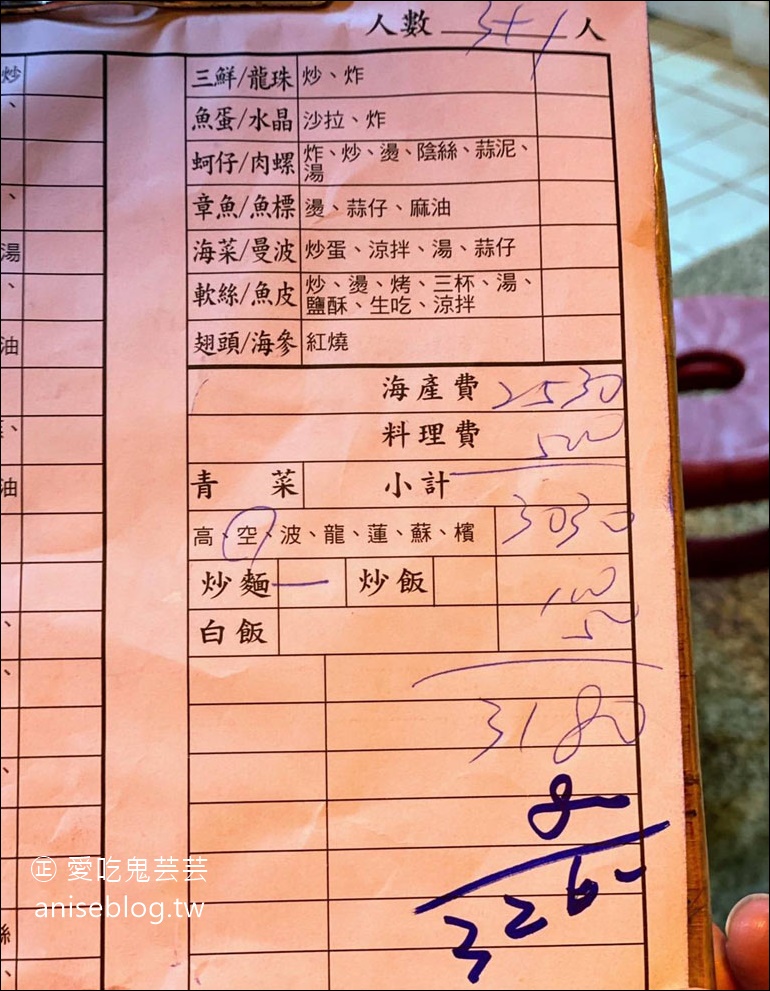 人數 3+1 人
炒 三鮮/龍珠 炒、炸
、 魚蛋/水晶 沙拉、炸
蚵仔/肉螺 炸、炒、燙、陰絲、蒜泥、
湯
、 章魚/魚標 燙、蒜仔、麻油
湯 海菜/曼波 炒蛋、涼拌、湯、蒜仔
、 軟絲/魚皮 炒、燙、烤、三杯、湯、
鹽酥、生吃、涼拌
油 翅頭/海參 紅燒
海產費 2530
料理費 500
油 青菜 小計
高、空、波、龍、蓮、蘇、檳 3030
炒麵 一 炒飯 100
白飯 50
3180
80
3260
㊣ 愛吃鬼芸芸
aniseblog.tw
絲